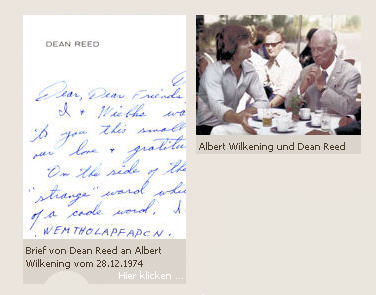 DEAN REED
Dear, Dear Friends
I + Wiebke wa
to you this small
our love + gratitu
On the side of the
"strange" word whic
of a code word. I
WEMTHOLAPFAPCN.
Brief von Dean Reed an Albert
Wilkening vom 28.12.1974
Hier klicken ...
Albert Wilkening und Dean Reed